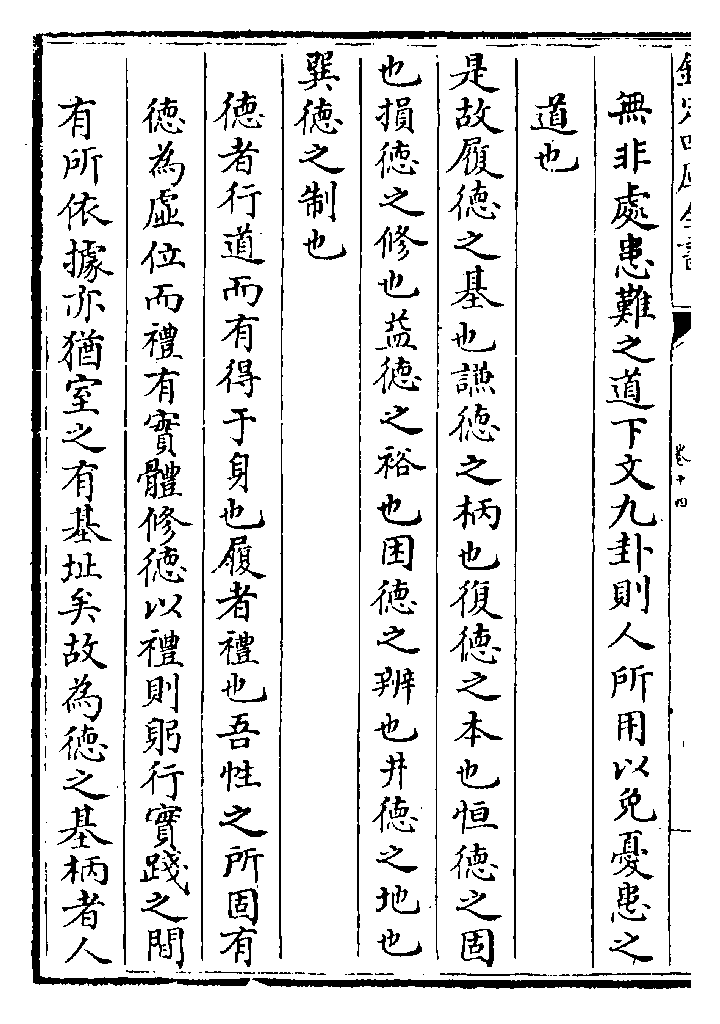 欽定四庫全書
卷十四
無非處患難之道下文九卦則人所用以免憂患之
道也
是故履德之基也謙德之柄也復德之本也恒德之固
也損德之修也益德之裕也困德之辨也井德之地也
巽德之制也
德者行道而有得于身也履者禮也吾性之所固有
德為虛位而禮有實體修德以禮則躬行實踐之間
有所依據亦猶室之有基址矣故為德之基柄者人